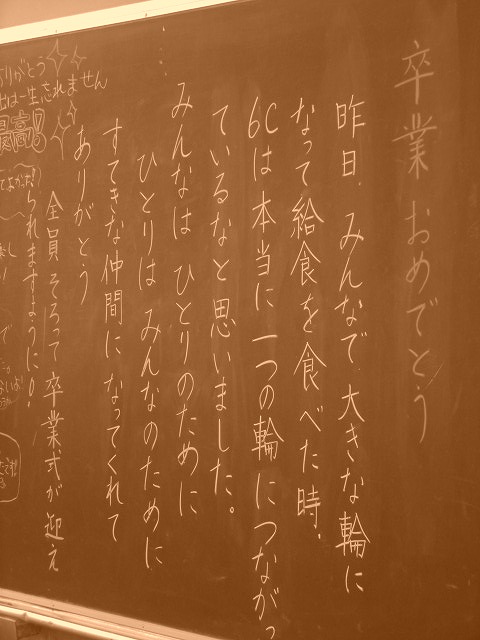 卒業おめでとう
昨日、みんなで大きな輪に
なって給食を食べた時、
6Cは本当に一つの輪につながっ
ているなと思いました。
みんなは ひとりのために
ひとりは みんなのために
すてきな仲間に なってくれて
ありがとう
全員そろって 卒業式が迎え
られますように。
ありがとう
は一生忘れません
最高!